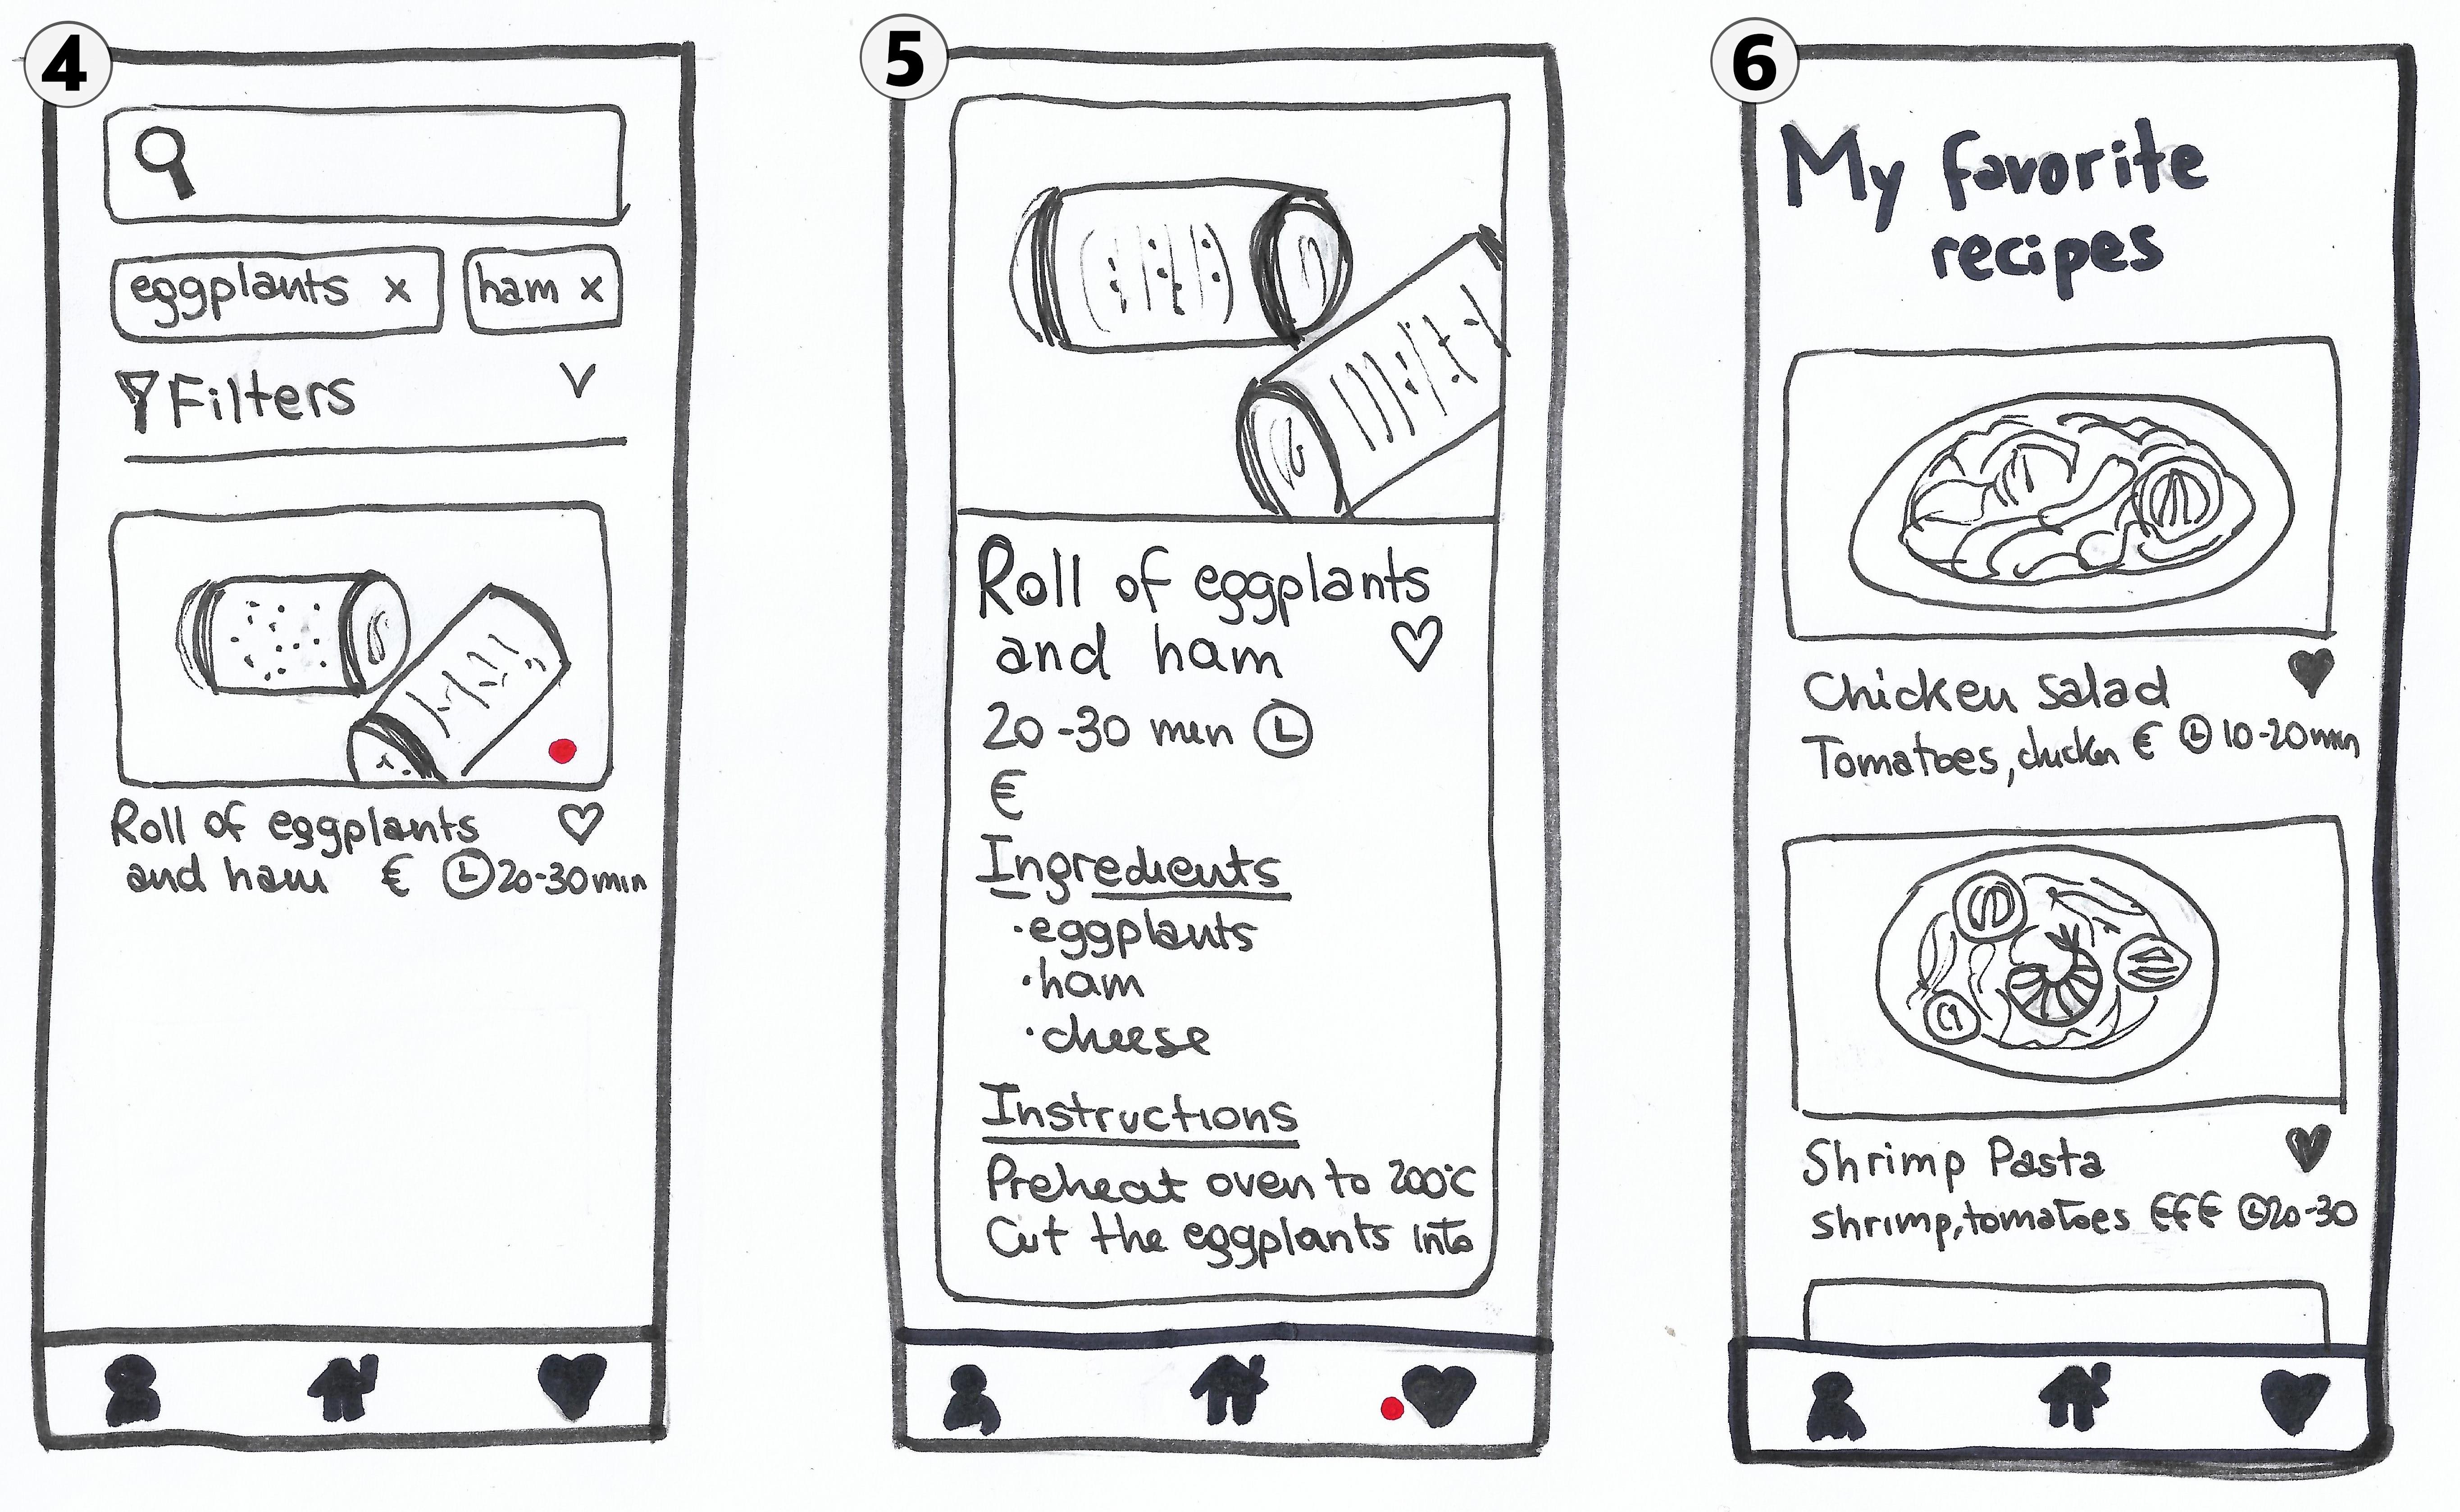 4
eggplants x
ham x
Filters
Roll of eggplants
and ham € 20-30min
5
Roll of eggplants
and ham
20-30 min
€
Ingredients
·eggplants
·ham
·cheese
Instructions
Preheat oven to 200°C
Cut the eggplants into
6
My favorite
recipes
Chicken salad
Tomatoes, chicken € 10-20min
Shrimp Pasta
shrimp, tomatoes €€€ 20-30